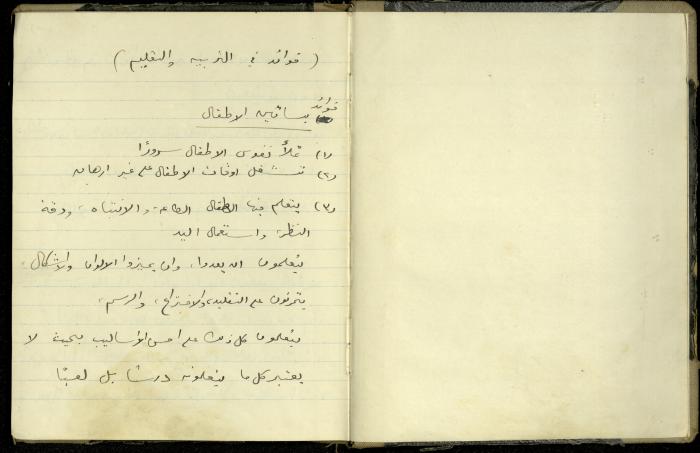 (فوائد في التربيه والتعليم)
فوائد
بساتين الاطفال
(١) تملأ نفوس الاطفال سرورًا
(٢) تشغل اوقات الاطفال على غير ارهاق
(٣) يتعلم فيها الاطفال الطاعة، والانتباه، ودقة
النظر، واستعمال اليد
يتعلمون ان يعدوا، وان يميزوا الالوان والاشكال،
يتمرنون على التقليد، والاختراع، والرسم،
يتعلمون كل ذلك على احسن الاساليب بحيث لا
يعتبر كل ما يتعلمونه درسًا بل لعبًا